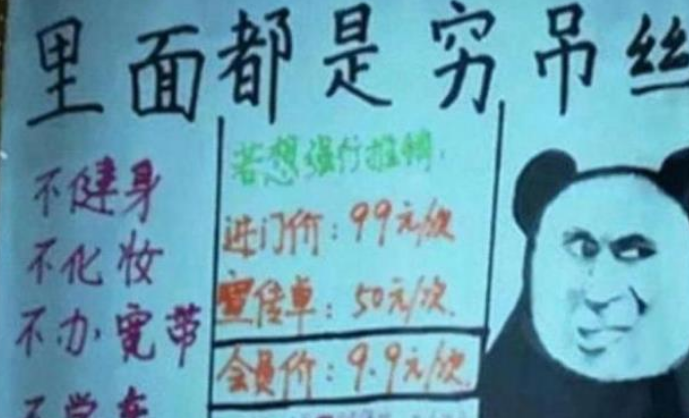 里面都是穷吊丝
不健身
不化妆
不办宽带
不学车
若想强行推销:
进门价:99元/次
宣传单:50元/次.
会员价:9.9元/次.